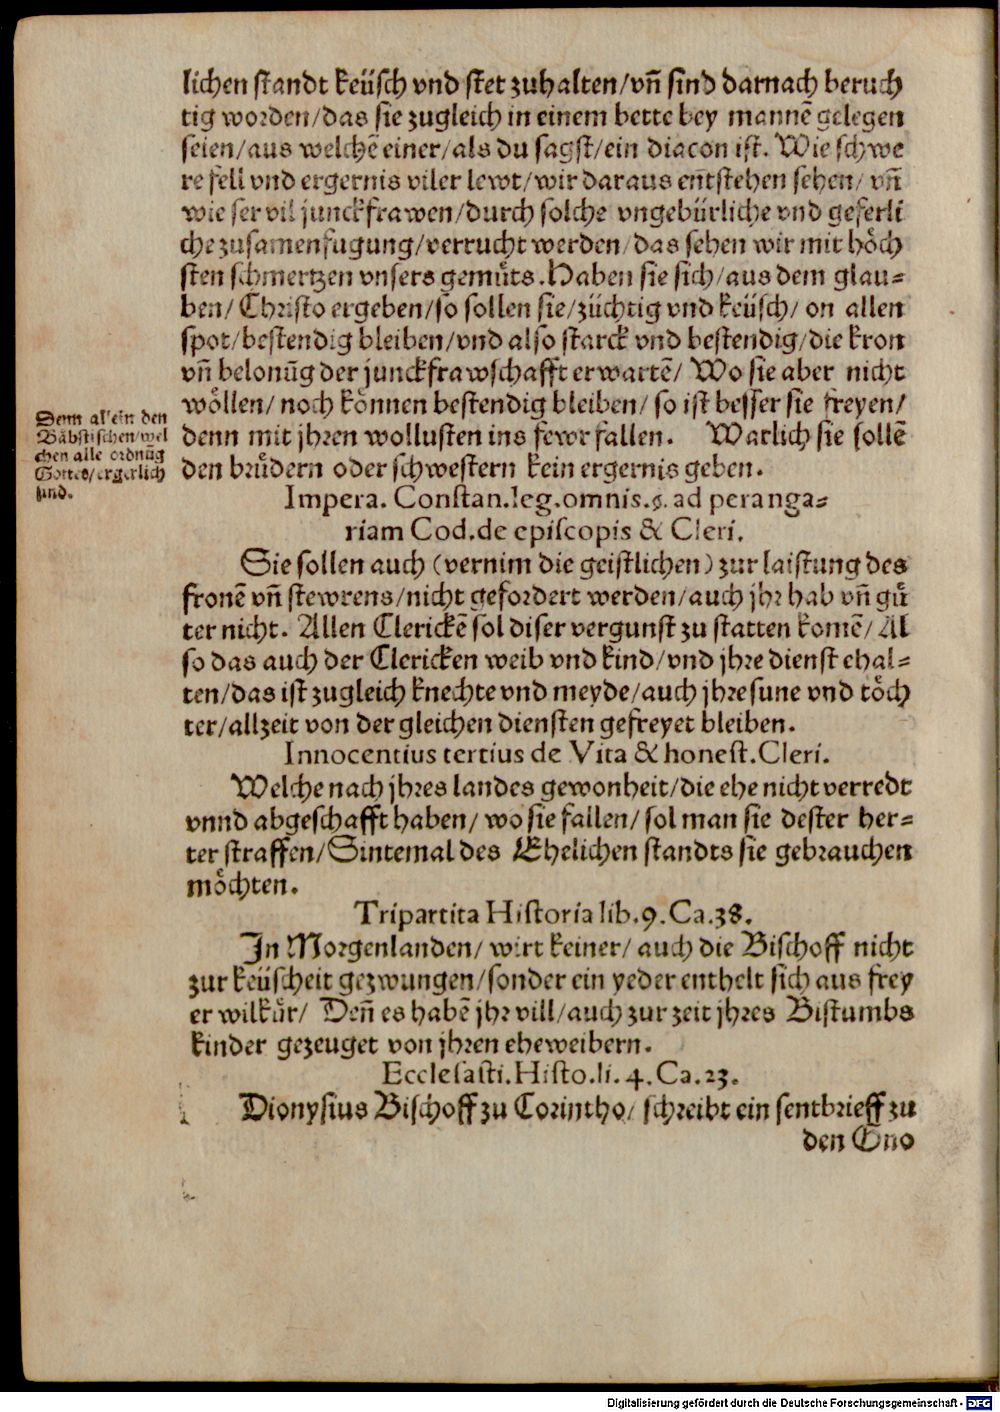 lichen standt keüsch vnd stet zuhalten/vn̄ sind darnach beruch
tig worden/das sie zugleich in einem bette bey mannē gelegen
seien/aus welchē einer/als du sagst/ein diacon ist. Wie schwe
re fell vnd ergernis viler lewt/wir daraus entstehen sehen/ vn̄
wie ser vil junckfrawen/durch solche vngebürliche vnd geferli
che zusamenfugung/verrucht werden/das sehen wir mit hoͤch
sten schmertzen vnsers gemuͤts. Haben sie sich/aus dem glau-
ben/ Christo ergeben/so sollen sie/züchtig vnd keüsch/ on allen
spot/bestendig bleiben/vnd also starck vnd bestendig/die kron
vn̄ belonūg der junckfrawschafft erwartē/ Wo sie aber nicht
woͤllen/ noch koͤnnen bestendig bleiben/ so ist besser sie freyen/
denn mit jhren wollusten ins fewr fallen. Warlich sie sollē
den bruͤdern oder schwestern kein ergernis geben.
Denn allein den
Baͤbstischen/wel
chen alle ordnūg
Gottes/ergerlich
sind.
Impera. Constan.leg.omnis.§. ad peranga-
riam Cod.de episcopis & Cleri.
Sie sollen auch (vernim die geistlichen) zur laistung des
fronē vn̄ stewrens/nicht gefordert werden/auch jhr hab vn̄ guͤ
ter nicht. Allen Clerickē sol diser vergunst zu statten komē/ Al
so das auch der Clericken weib vnd kind/vnd jhre dienst ehal-
ten/das ist zugleich knechte vnd meyde/auch jhre sune vnd toͤch
ter/allzeit von der gleichen diensten gefreyet bleiben.
Innocentius tertius de Vita & honest.Cleri.
Welche nach jhres landes gewonheit/die ehe nicht verredt
vnnd abgeschafft haben/ wo sie fallen/ sol man sie dester her-
ter straffen/Sintemal des Ehelichen standts sie gebrauchen
moͤchten.
Tripartita Historia lib.9.Ca.38.
In Morgenlanden/ wirt keiner/ auch die Bischoff nicht
zur keüscheit gezwungen/sonder ein yeder enthelt sich aus frey
er wilkuͤr/ Den̄ es habē jhr vill/auch zur zeit jhres Bistumbs
kinder gezeuget von jhren eheweibern.
Ecclesasti.Histo.li.4.Ca.23.
Dionysius Bischoff zu Corintho/ schreibt ein sentbrieff zu
den Gno
Digitalisierung gefördert durch die Deutsche Forschungsgemeinschaft - DFG